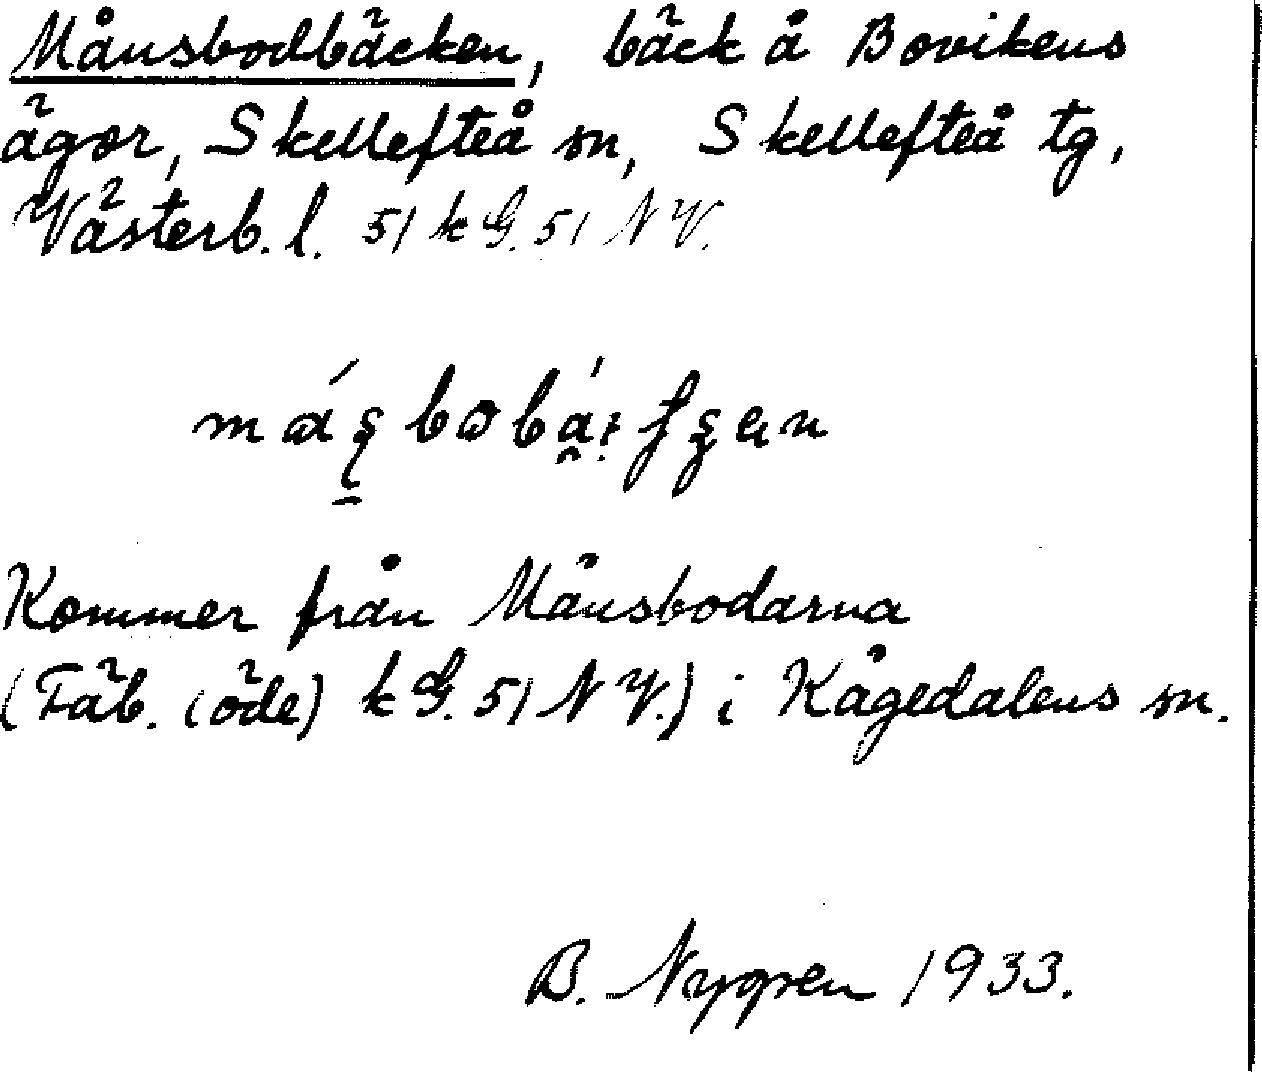 Månsbodbäcken, bäck å Bovikens
ägor, Skellefteå sn, Skellefteå tg,
Västerb. l. 51 k G. 51 N V.
Kommer från Månsbodarna
(Fäb. (öde) k G. 51 N V.) i Kågedalens sn.
B. Nygren 1933.